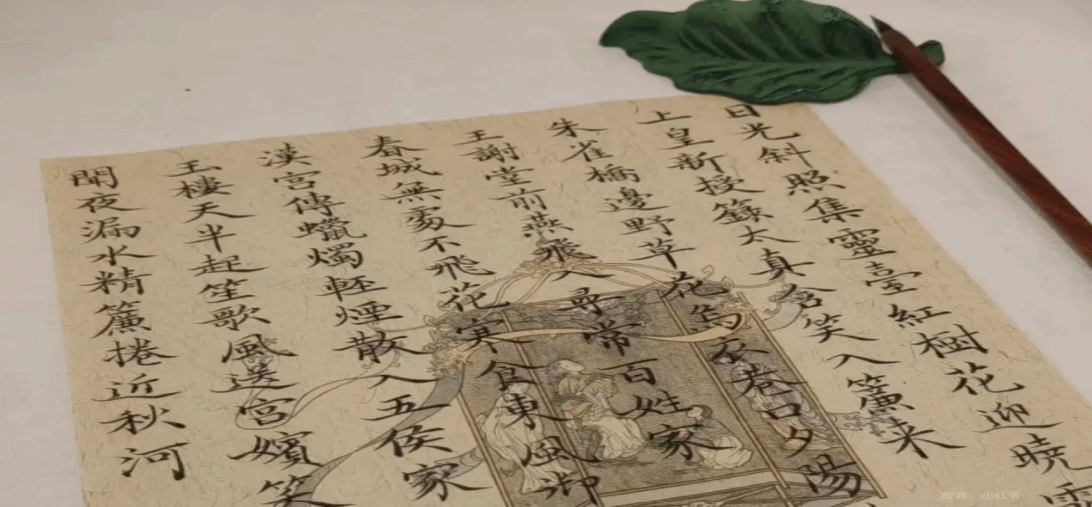 日光斜照集靈臺紅樹花迎曉
上皇新授籙太真含笑入簾来
朱雀橋邊野草花烏衣巷口夕陽
王謝堂前燕飛入尋常百姓家
春城無處不飛花寒食東風御
漢宮傳蠟燭輕煙散入五侯家
玉樓天半起笙歌風送宮嬪笑
聞夜漏水精簾捲近秋河
小红书